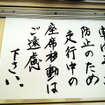 防止のため
走行中の
座席移動は
ご遠慮
下さい。